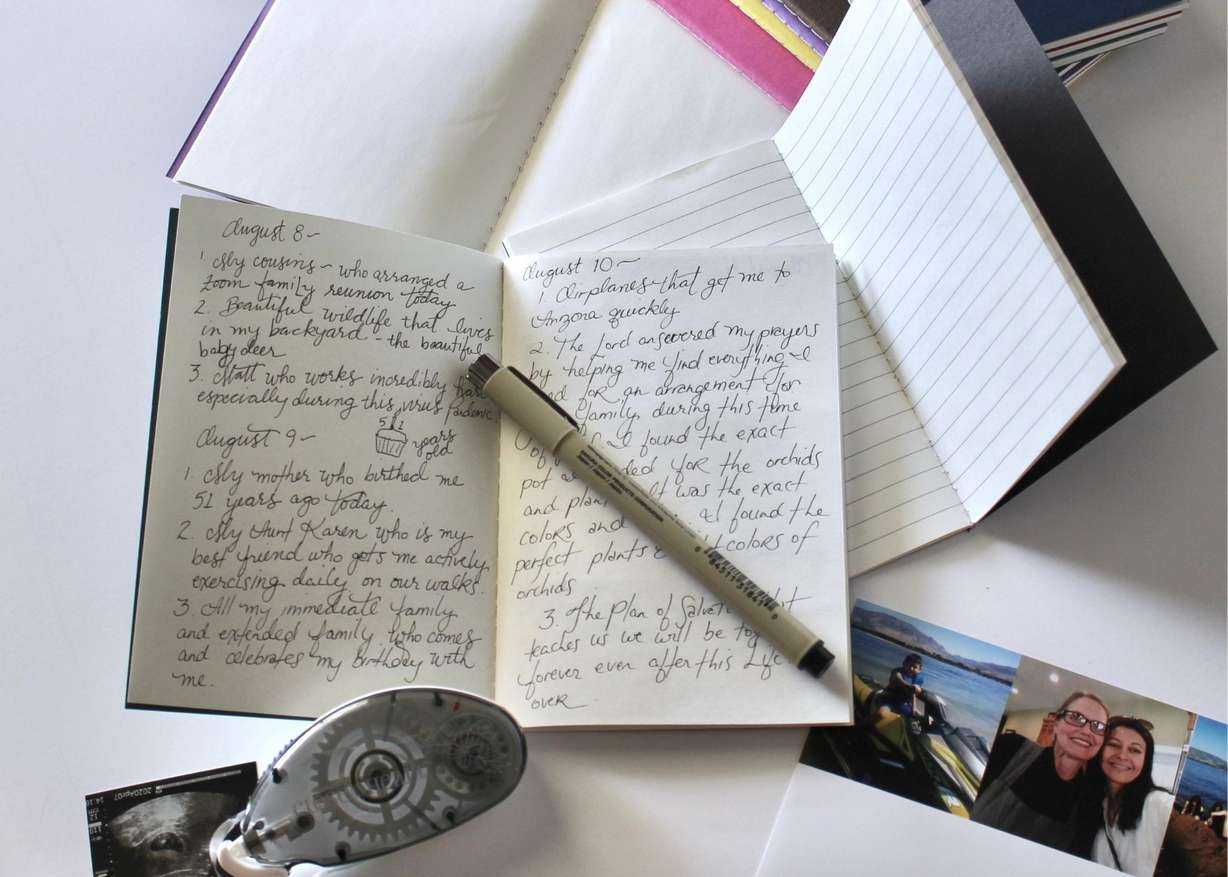 August 8~
1. My cousins - who arranged a
Zoom family reunion today
2. Beautiful wildlife that lives
in my backyard - the beautiful
baby deer
3. Matt who works incredibly
especially during this virus
August 9~
51
years
old
1. My mother who birthed me
51 years ago today.
2. My Aunt Karen who is my
best friend who gets me actively
exercising daily on our walks.
3. All my immediate family
and extended family who comes
and celebrates my birthday with
me.
August 10~
1. Airplanes that get me to
quickly
2. The Lord answered my prayers
by helping me find everything I
for an arrangement for
family during this time
I found the exact
pot for the orchids
and It was the exact
colors and I found the
perfect plants colors of
orchids
3. The Plan of
teaches us we will be
forever even after this life
over
2020Apr07